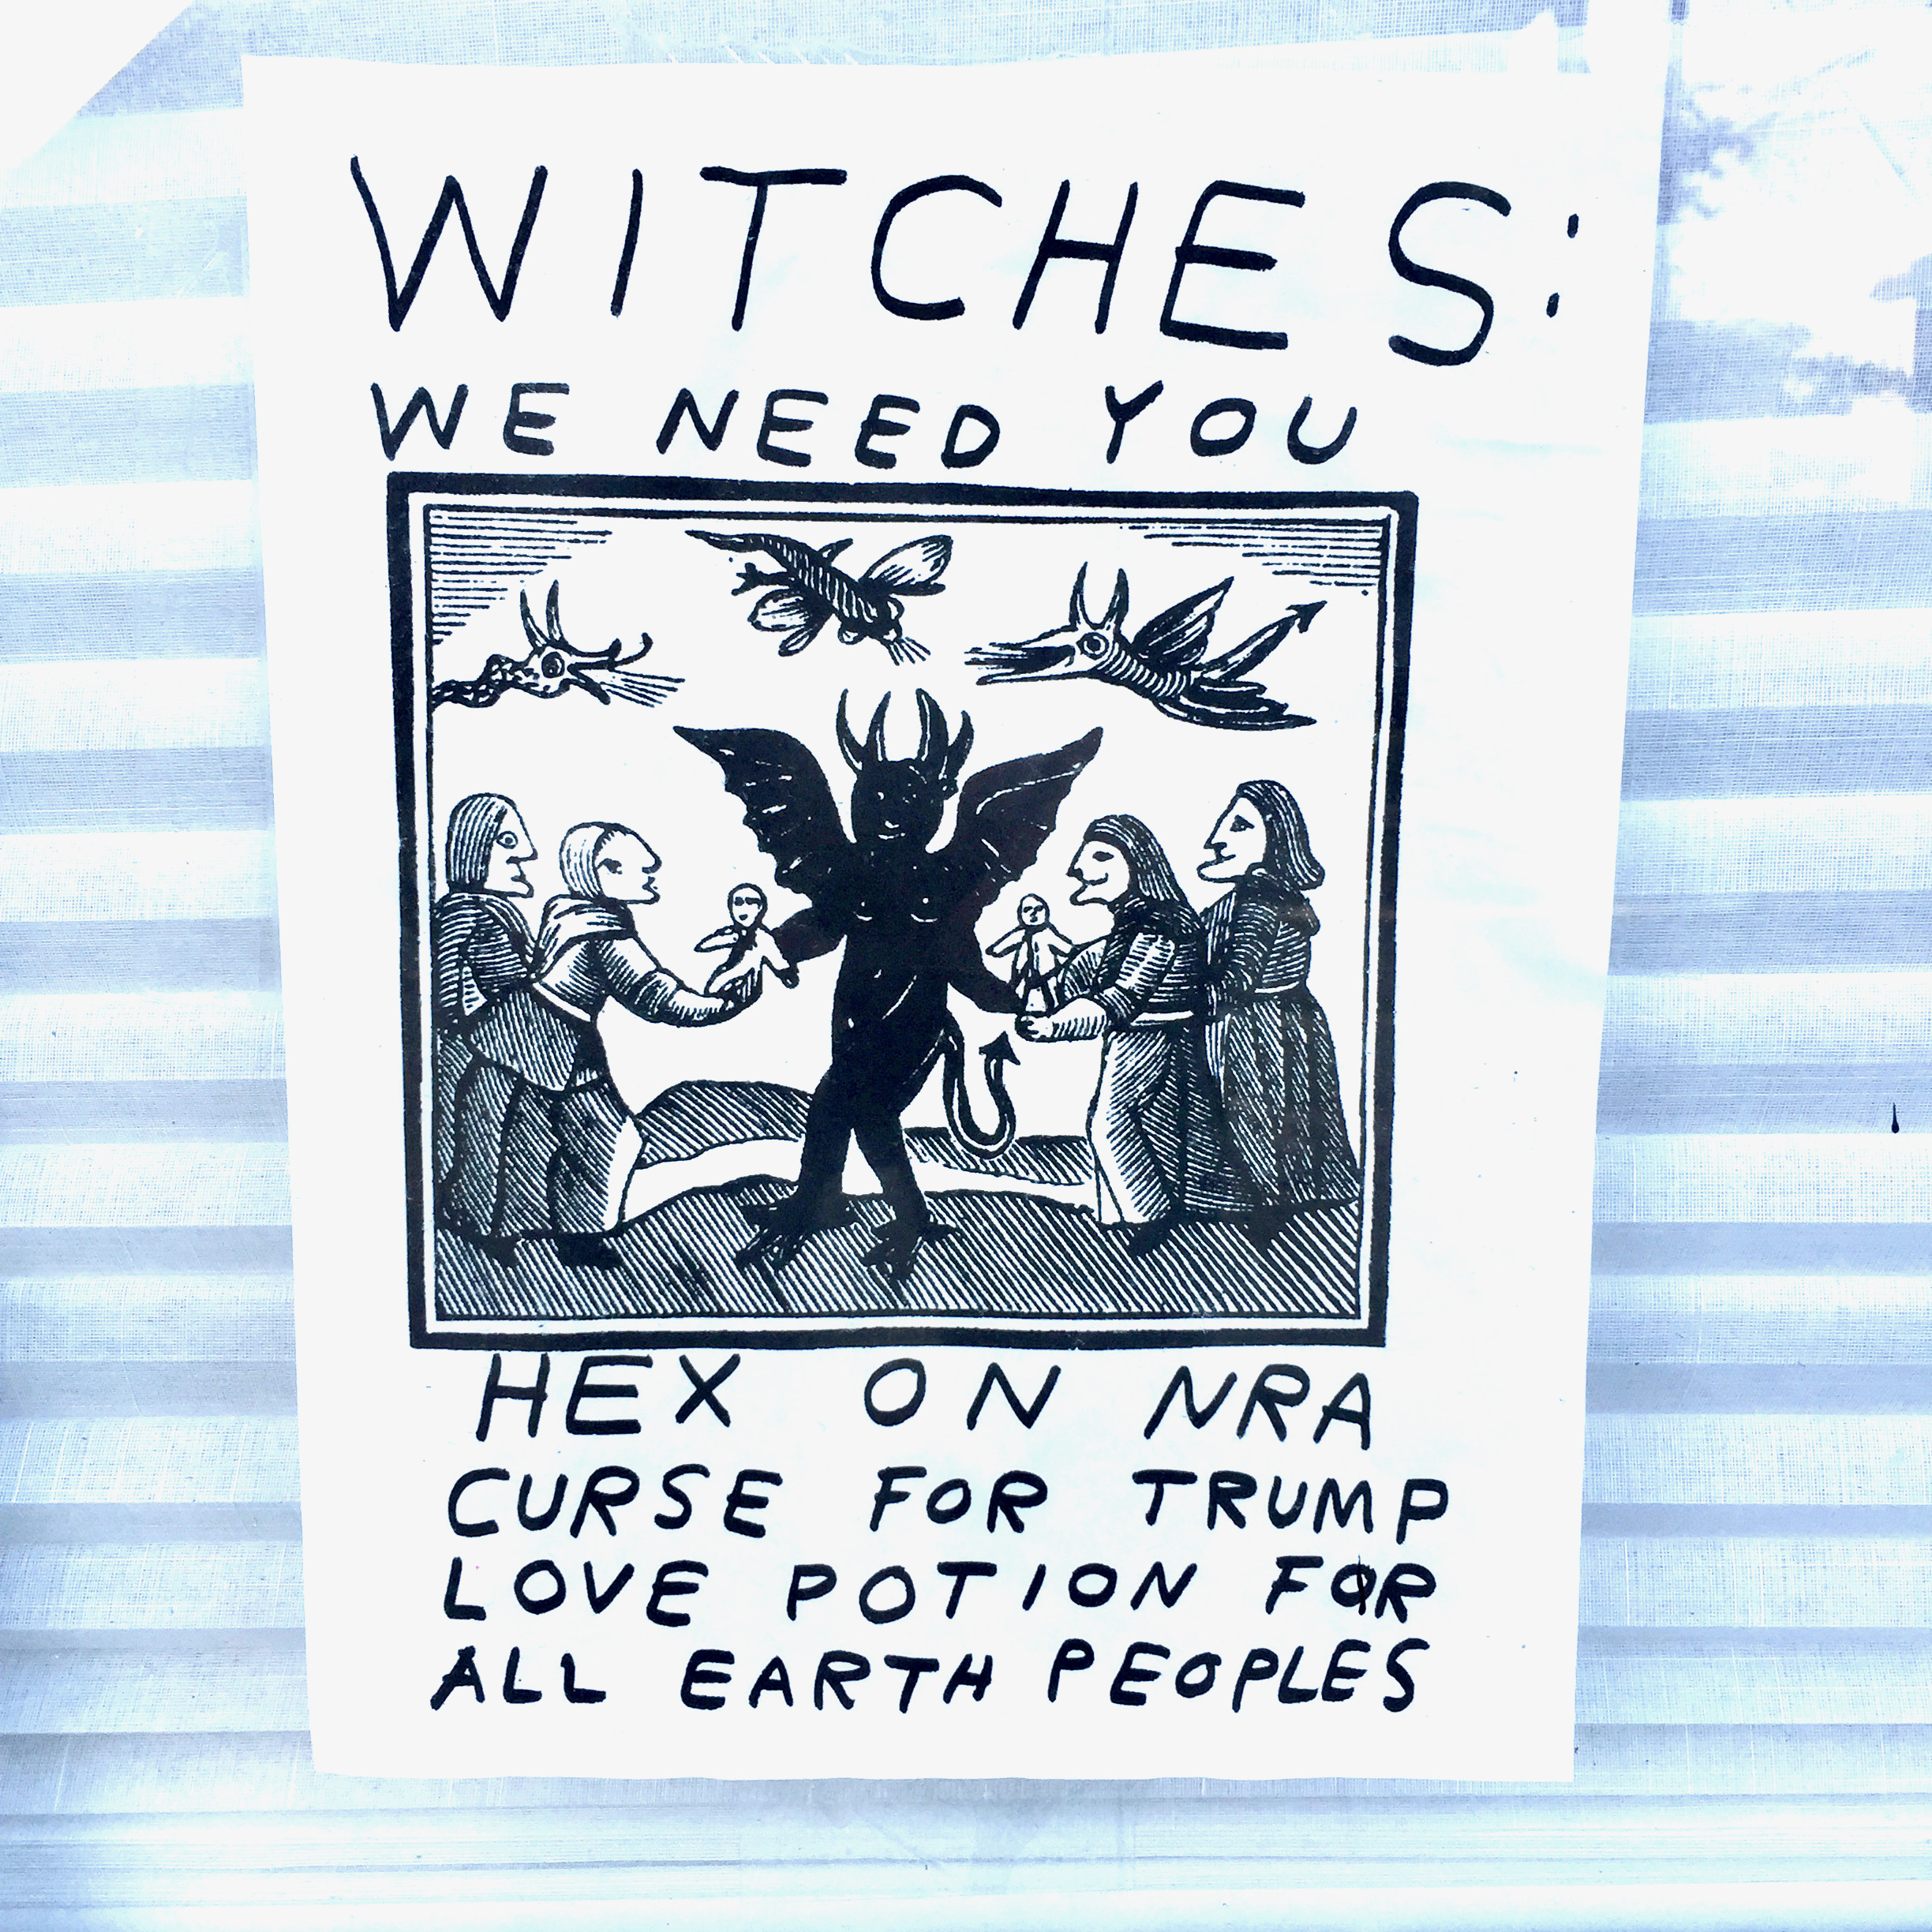 WITCHES:
WE NEED YOU
HEX ON NRA
CURSE FOR TRUMP
LOVE POTION FOR
ALL EARTH PEOPLES